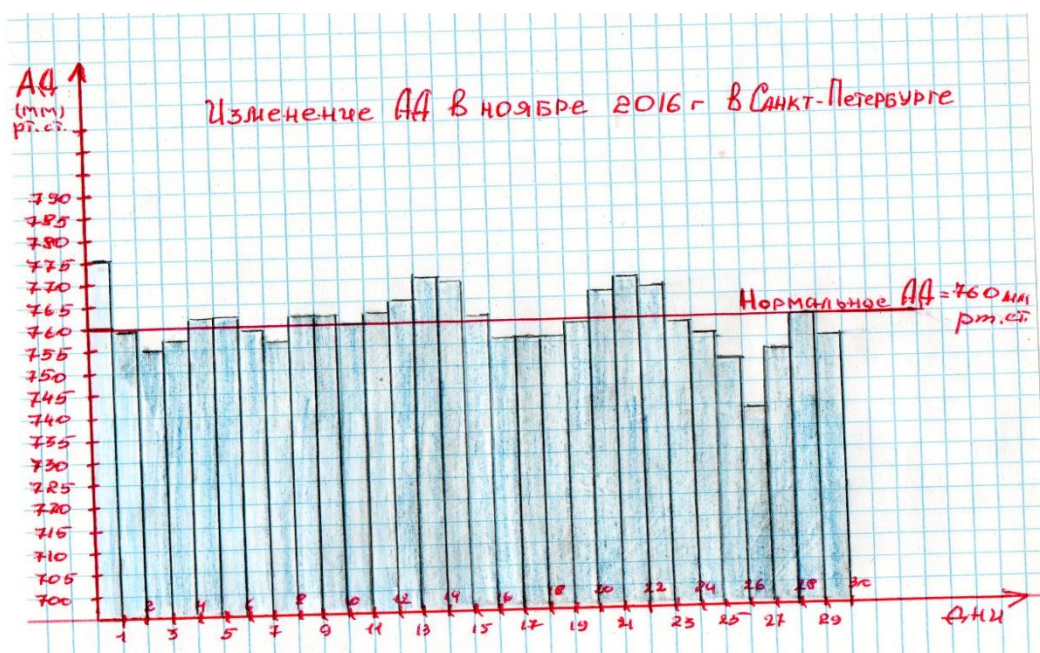 АД
(мм)
рт.ст.
Изменение АД в ноябре 2016 г в Санкт-Петербурге
790
785
780
775
770
765
760
755
750
745
740
735
730
725
720
715
710
705
700
Нормальное АД = 760 мм
рт.ст.
2 4 6 8 10 12 14 16 18 20 22 24 26 28 30
1 3 5 7 9 11 13 15 17 19 21 23 25 27 29
Дни